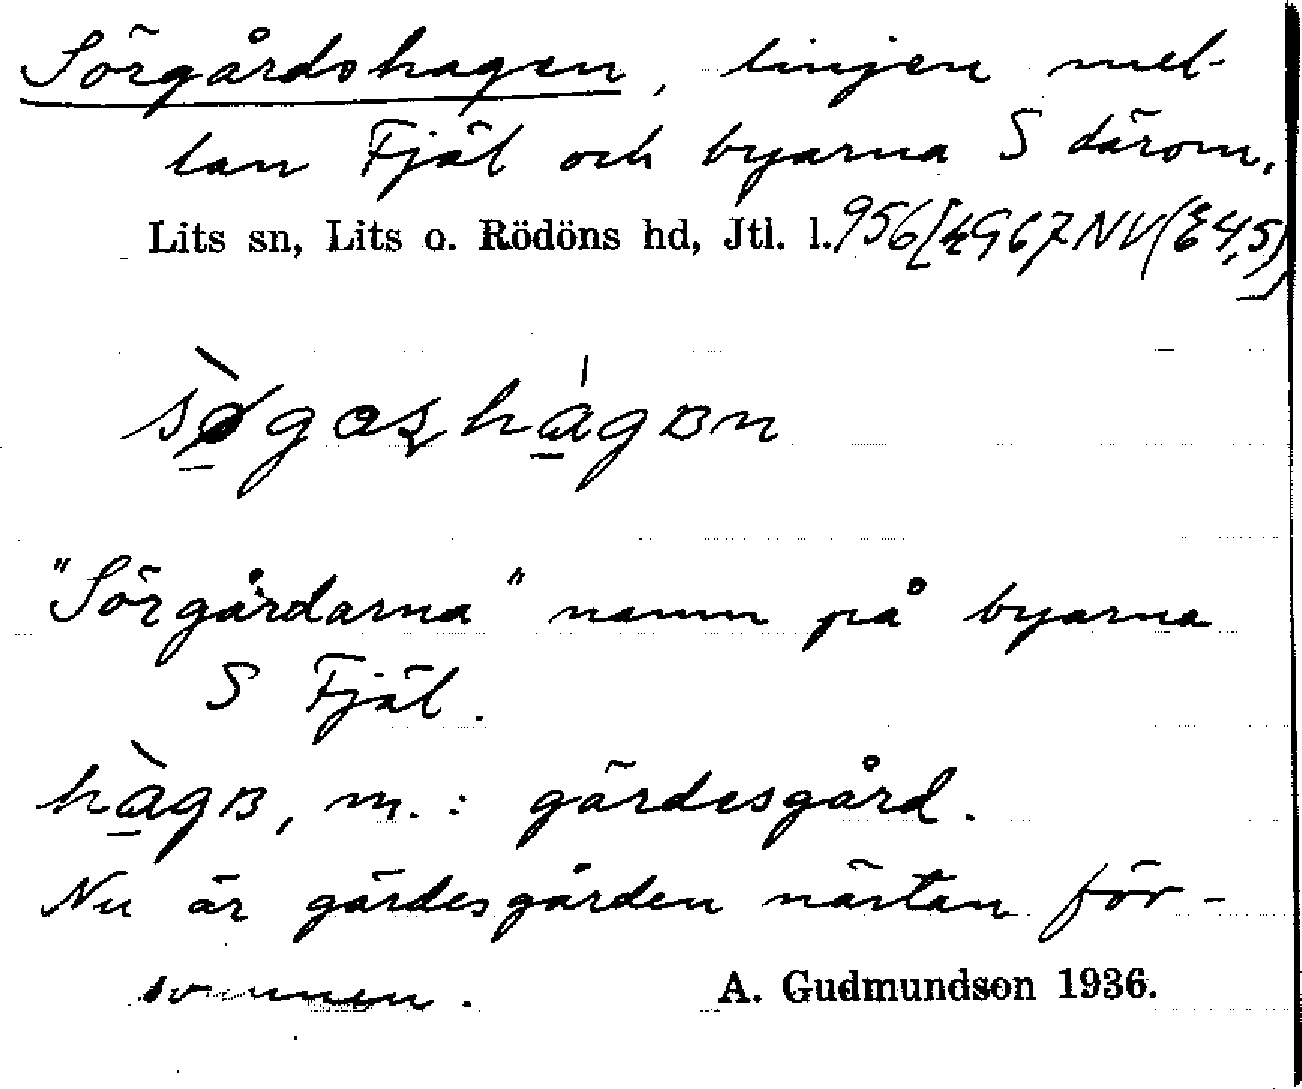 Sörgårdshagen, linjen mel-
lan Fjäl och byarna S därom,
Lits sn, Lits o. Rödöns hd, Jtl. l.
"Sörgårdarna" namn på byarna
S Fjäl.
m.: gärdesgård.
Nu är gärdesgården nästan för-
svunnen.
A. Gudmundson 1936.